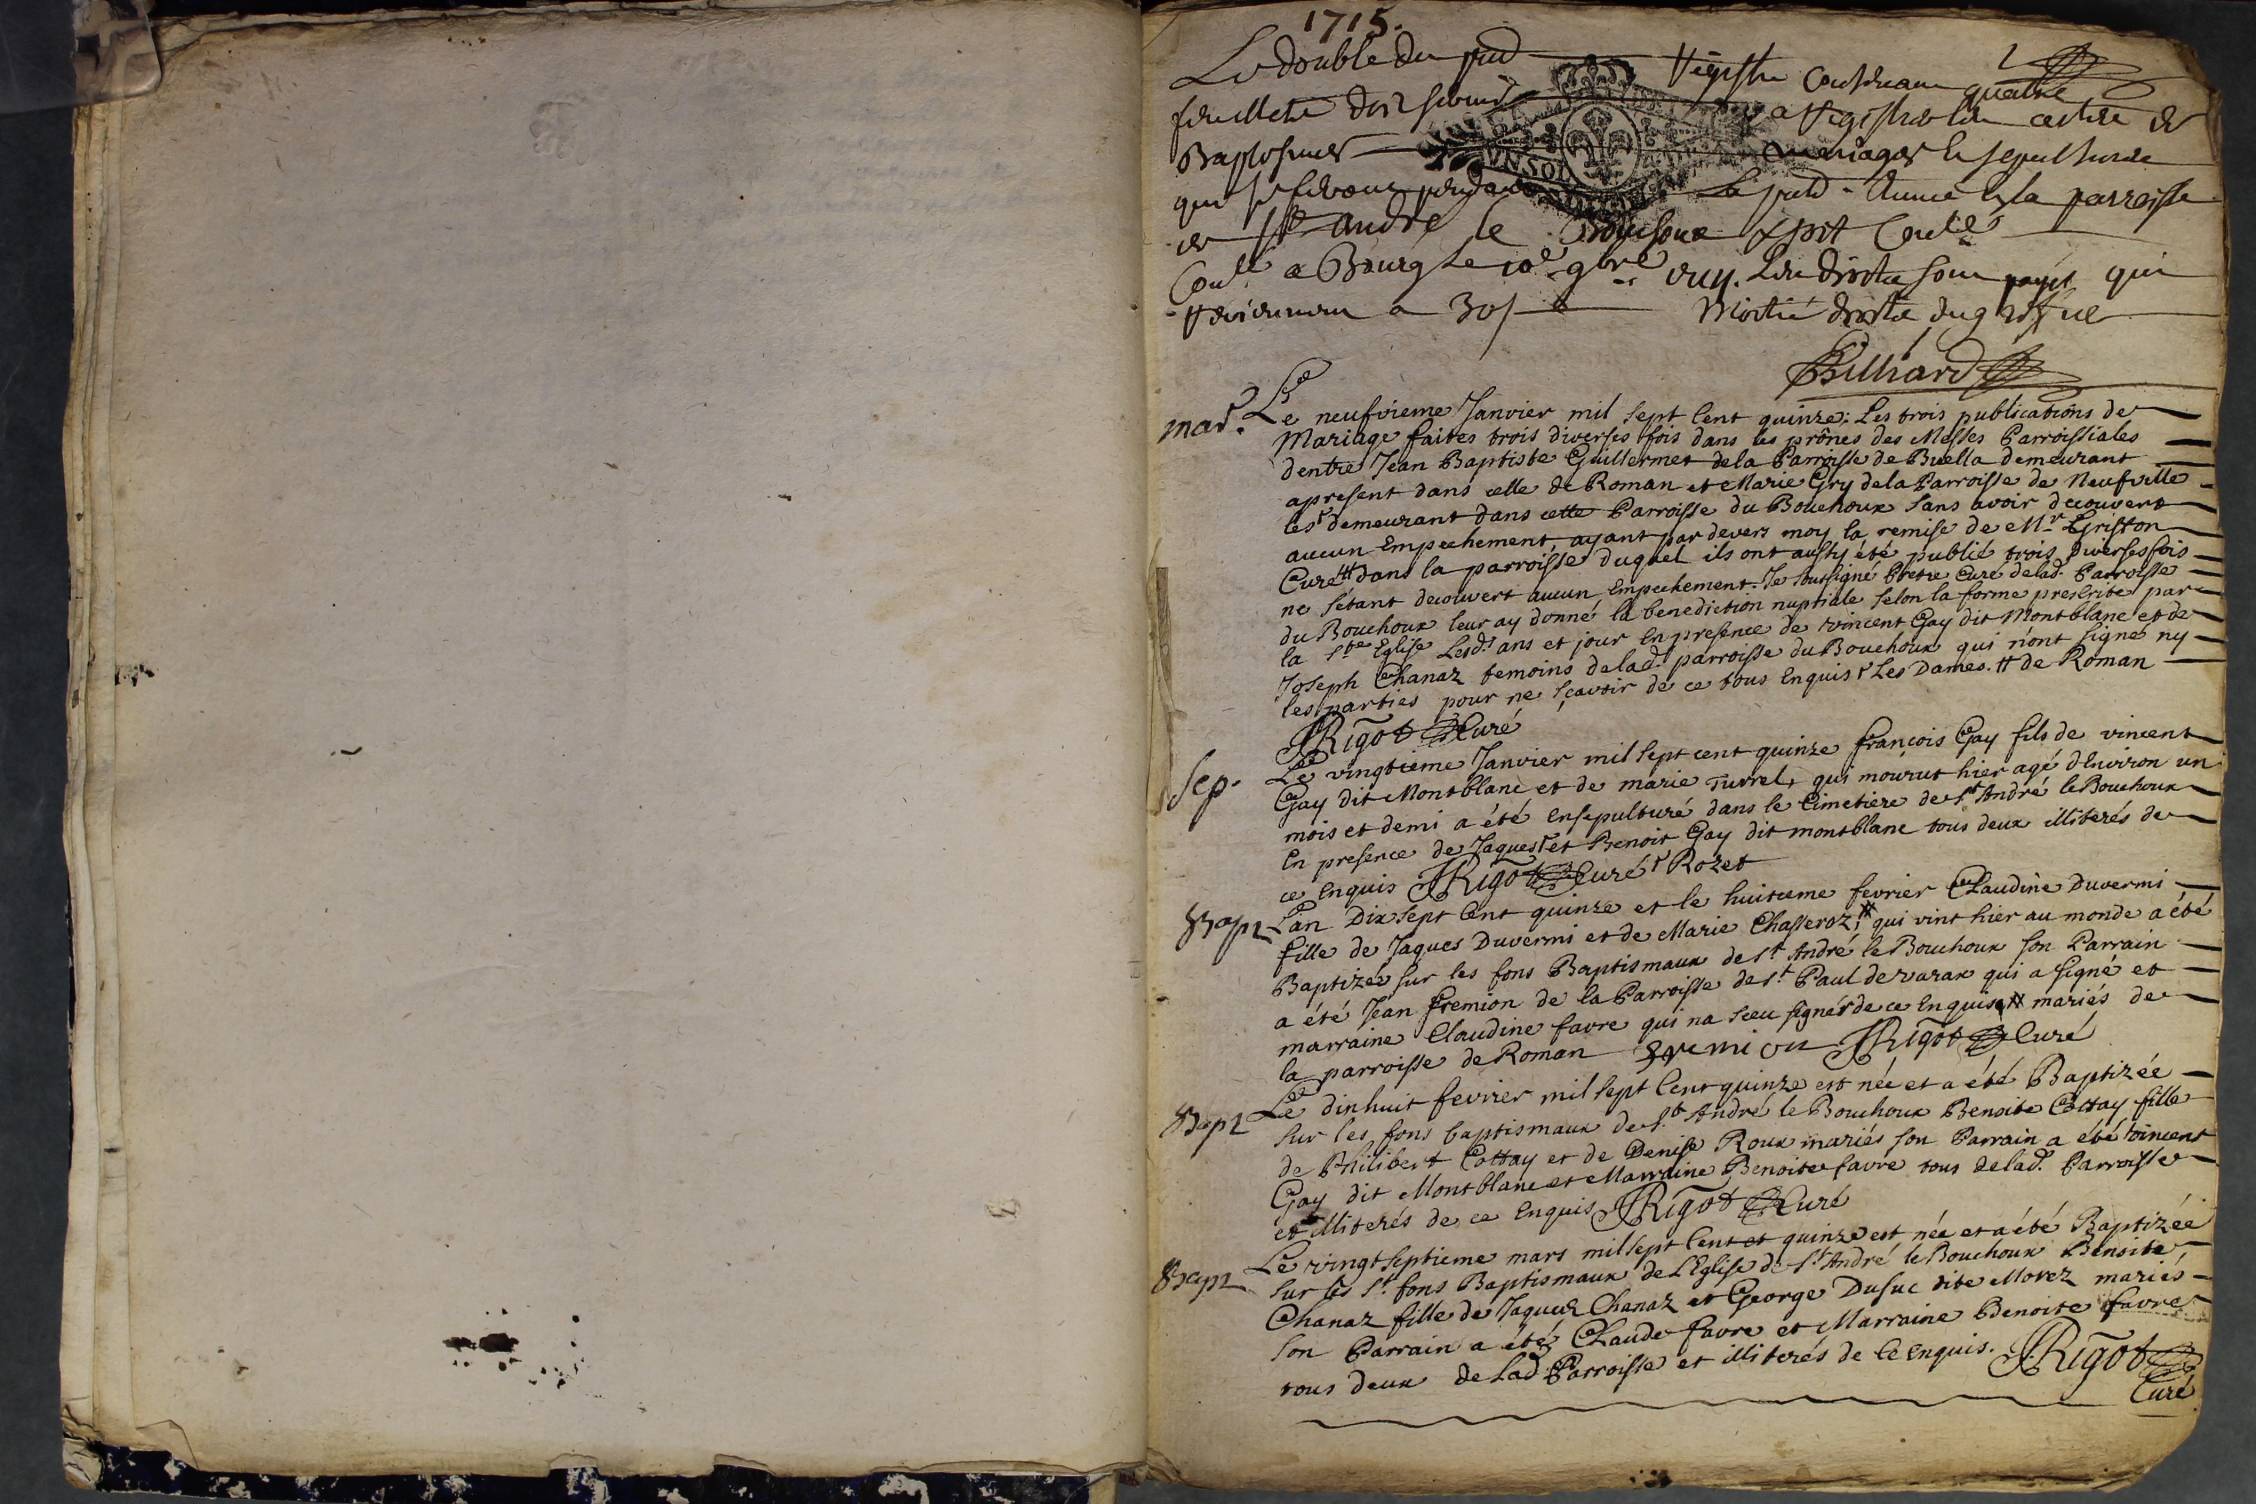 1715.
Le double du pnt Registre contenant quatre
feuillets doit servir a Registrer les actes de
Baptesmes mariages et sepultures
qui se feront pendant la pnte Année en la parroisse
de St André le Bouchoux
a Bourg le 10e 9bre Les droits sont payés qui
reviennent a 30s Moitié droits du greffe
Billiard
mar. Le neufvieme Janvier mil sept Cent quinze: Les trois publications de
Mariage faites trois diverses fois dans les prônes des Messes Parroissiales
dentre Jean Baptiste Guillermet dela Parroisse de Buella demeurant
apresent dans celle de Roman et Marie Gry dela Parroisse de Neufville
les⸆ demeurant dans cette Parroisse du Bouchoux Sans avoir decouvert
aucun Empechement, ayant par devers moy la remise de Mr. Griffon
Curé# dans la parroisse duquel ils ont aussy été publié trois diverses fois
ne sétant decouvert aucun Empechement. Je soussigné Pretre Curé delad. Parroisse
du Bouchoux leur ay donné la benediction nuptiale selon la forme prescrite par
la Ste Eglise Lesd. ans et jour En presence de vincent Gay dit Montblanc et de
Joseph Chanaz temoins delad. parroisse du Bouchoux qui n'ont signé ny
les parties pour ne sçavoir de ce tous Enquis ⸆ Les Dames. # de Roman
JRigot Curé
Sep. Le vingtieme Janvier mil sept cent quinze francois Gay fils de vincent
Gay dit Montblanc et de marie Turrel, qui mourut hier agé dEnviron un
mois et demi a été Ensepulturé dans le Cimetiere de St André le Bouchoux
En presence de Jaques⸆ et Benoit Gay dit montblanc tous deux illiterés de
ce Enquis JRigot Curé ⸆ Rozet
Bap Lan Dix sept Cent quinze et le huitieme fevrier Claudine Duvermi
fille de Jaques Duvermi et de Marie Chasseroz,# qui vint hier au monde a été
Baptizée sur les fons Baptismaux de St. André le Bouchoux son Parrain
a été Jean fremion de la Parroisse de St. Paul de varax qui a signé et
marraine Claudine favre qui na sceu signer de ce Enquise # mariés de
la parroisse de Roman Fremion JRigot Curé
Bap Le dixhuit fevrier mil sept Cent quinze est née et a été Baptizée
sur les fons baptismaux de St. André le Bouchoux Benoite Cottay fille
de Philibert Cottay et de Denise Roux mariés son Parrain a été vincent
Gay dit Montblanc et Marraine Benoite favre tous delad. Parroisse
et illiterés de ce Enquis JRigot Curé
Bap Le vingtseptieme mars mil sept Cent et quinze est née et a été Baptizée
sur les St. fons Baptismaux de LEglise de St André le Bouchoux Benoite
Chanaz fille de Jaques Chanaz et George Dusuc dite Morez mariés
son Parrain a été Claude favre et Marraine Benoite favre
tous deux de Lad. Parroisse et illiterés de Ce Enquis. JRigot
Curé